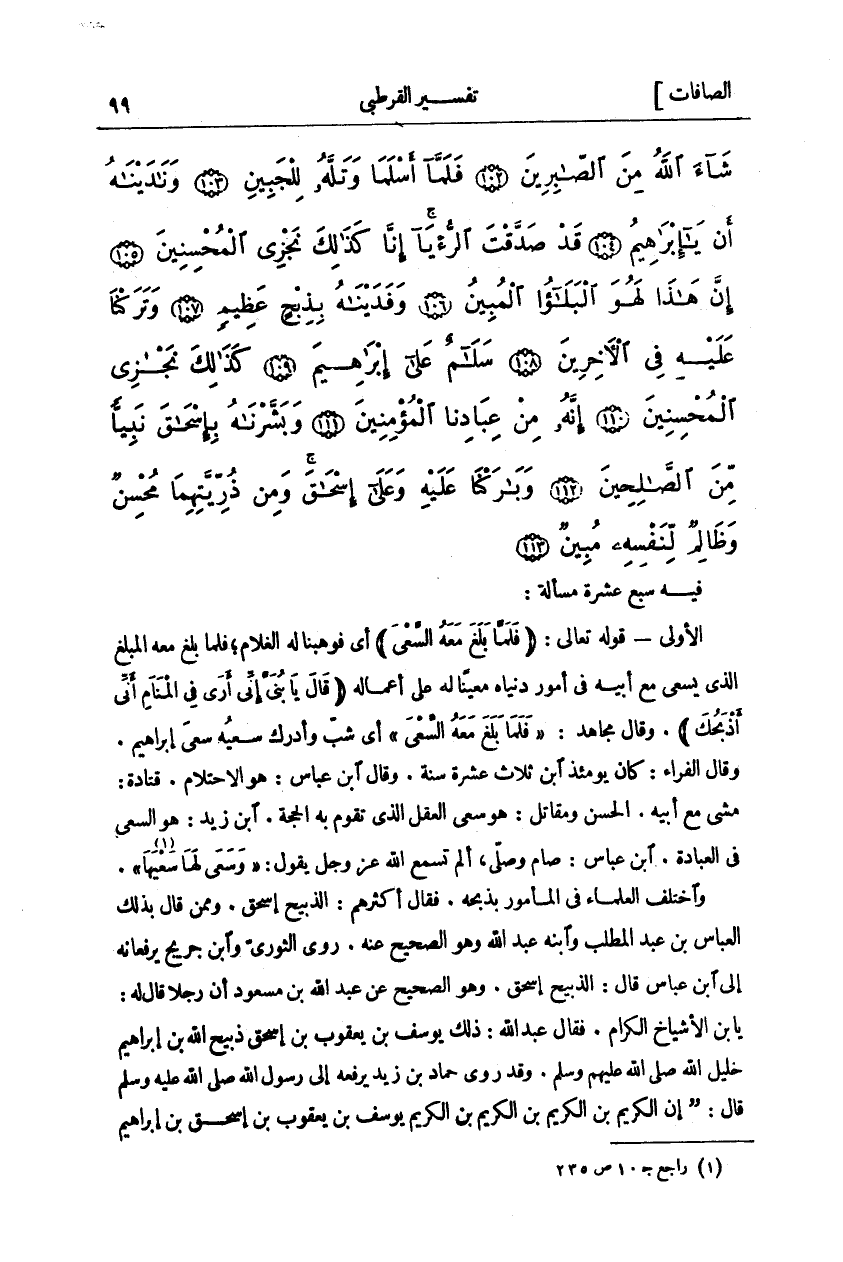 الصافات ] تفسير القرطبي ٩٩
شَآءَ ٱللَّهُ مِنَ ٱلصَّٰبِرِينَ ١٠٢ فَلَمَّآ أَسْلَمَا وَتَلَّهُۥ لِلْجَبِينِ ١٠٣ وَنَٰدَيْنَٰهُ
أَن يَٰٓإِبْرَٰهِيمُ ١٠٤ قَدْ صَدَّقْتَ ٱلرُّءْيَآۚ إِنَّا كَذَٰلِكَ نَجْزِى ٱلْمُحْسِنِينَ ١٠٥
إِنَّ هَٰذَا لَهُوَ ٱلْبَلَٰٓؤُا ٱلْمُبِينُ ١٠٦ وَفَدَيْنَٰهُ بِذِبْحٍ عَظِيمٍ ١٠٧ وَتَرَكْنَا
عَلَيْهِ فِى ٱلْأَخِرِينَ ١٠٨ سَلَٰمٌ عَلَىٰٓ إِبْرَٰهِيمَ ١٠٩ كَذَٰلِكَ نَجْزِى
ٱلْمُحْسِنِينَ ١١٠ إِنَّهُۥ مِنْ عِبَادِنَا ٱلْمُؤْمِنِينَ ١١١ وَبَشَّرْنَٰهُ بِإِسْحَٰقَ نَبِيًّا
مِّنَ ٱلصَّٰلِحِينَ ١١٢ وَبَٰرَكْنَا عَلَيْهِ وَعَلَىٰٓ إِسْحَٰقَۚ وَمِن ذُرِّيَّتِهِمَا مُحْسِنٌ
وَظَالِمٌ لِّنَفْسِهِۦ مُبِينٌ ١١٣
فيه سبع عشرة مسألة :
الأولى — قوله تعالى : ( فَلَمَّا بَلَغَ مَعَهُ السَّعْىَ ) أى فوهبنا له الغلام؛ فلما بلغ معه المبلغ
الذى يسعى مع أبيه فى أمور دنياه معينًا له على أعماله ( قَالَ يَا بُنَىَّ إِنِّى أَرَى فِى الْمَنَامِ أَنِّى
أَذْبَحُكَ ) . وقال مجاهد : « فَلَمَّا بَلَغَ مَعَهُ السَّعْىَ » أى شبّ وأدرك سعيُه سعىَ إبراهيم .
وقال الفراء : كان يومئذ ٱبن ثلاث عشرة سنة . وقال ٱبن عباس : هو الاحتلام . قتادة :
مشى مع أبيه . الحسن ومقاتل : هو سعى العقل الذى تقوم به الحجة . ٱبن زيد : هو السعى
فى العبادة . ٱبن عباس : صام وصلّى، ألم تسمع الله عز وجل يقول : « وَسَعَى لَهَا سَعْيَهَا(١) » .
وٱختلف العلماء فى المأمور بذبحه . فقال أكثرهم : الذبيح إسحق . وممن قال بذلك
العباس بن عبد المطلب وٱبنه عبد الله وهو الصحيح عنه . روى الثورىّ وٱبن جريج يرفعانه
إلى ٱبن عباس قال : الذبيح إسحق . وهو الصحيح عن عبد الله بن مسعود أن رجلا قال له :
يا بن الأشياخ الكرام . فقال عبد الله : ذلك يوسف بن يعقوب بن إسحق ذبيح الله بن إبراهيم
خليل الله صلى الله عليهم وسلم . وقد روى حماد بن زيد يرفعه إلى رسول الله صلى الله عليه وسلم
قال : " إن الكريم بن الكريم بن الكريم بن الكريم يوسف بن يعقوب بن إسحق بن إبراهيم
(١) راجع جـ ١٠ ص ٢٣٥